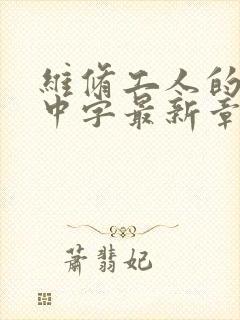 維脩工人的
中字最新章
蕭翡妃